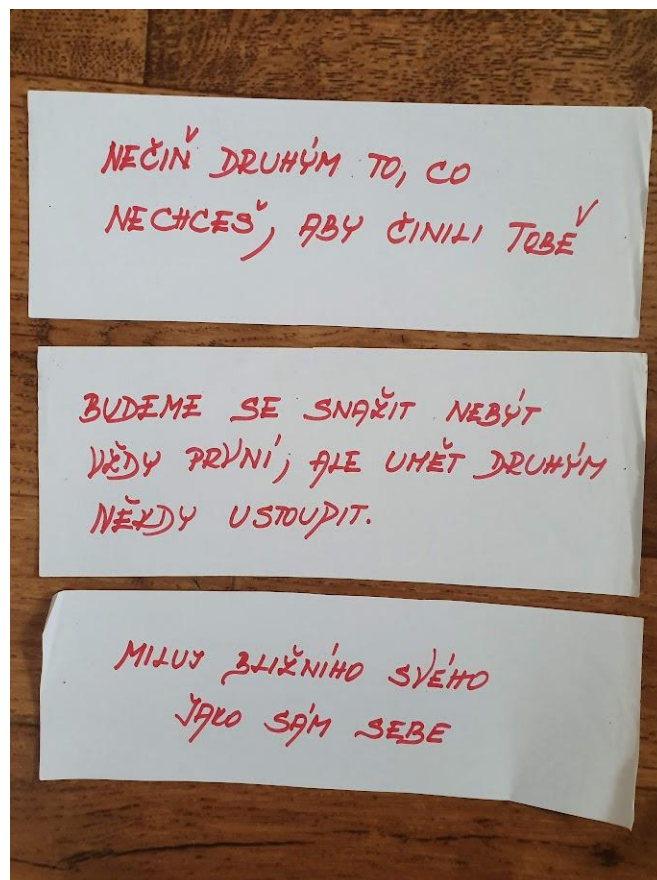 NEČIŇ DRUHÝM TO, CO
NECHCEŠ, ABY ČINILI TOBĚ
BUDEME SE SNAŽIT NEBÝT
VŽDY PRVNÍ, ALE UMĚT DRUHÝM
NĚKDY USTOUPIT.
MILUJ BLIŽNÍHO SVÉHO
JAKO SÁM SEBE